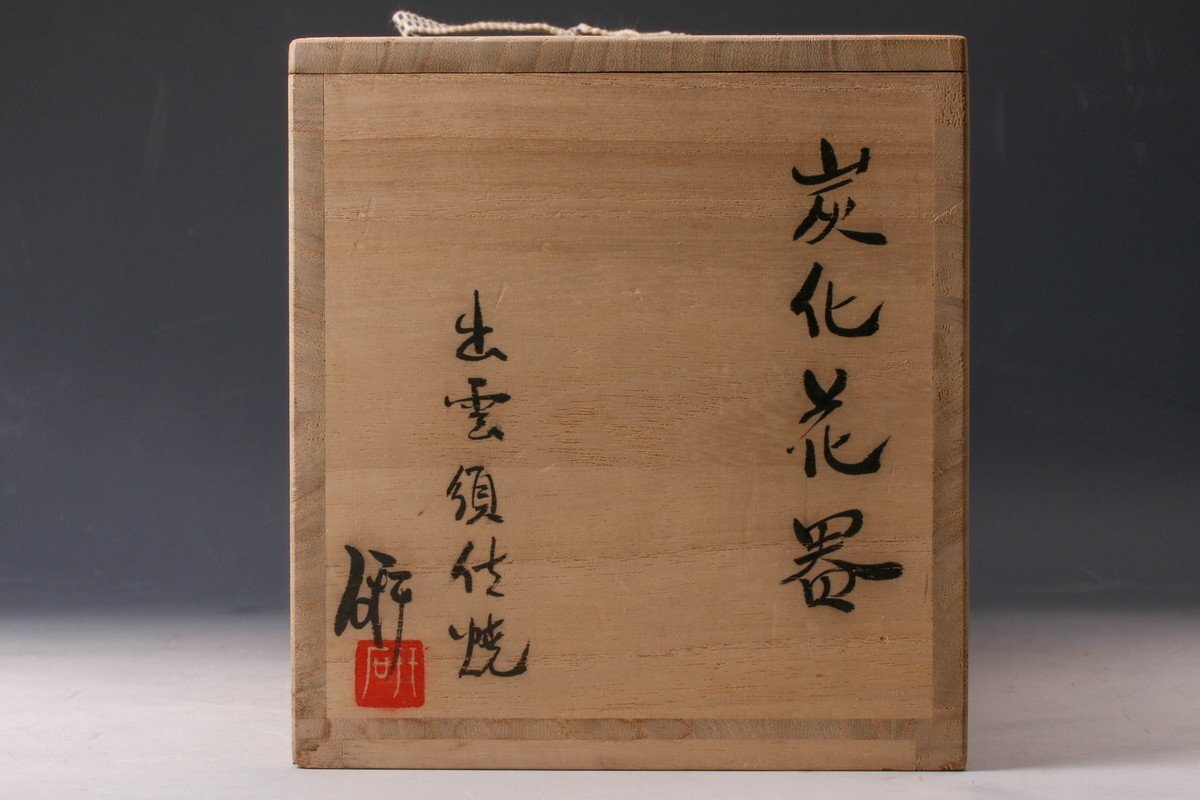 炭化花器
出雲須佐焼
研
研